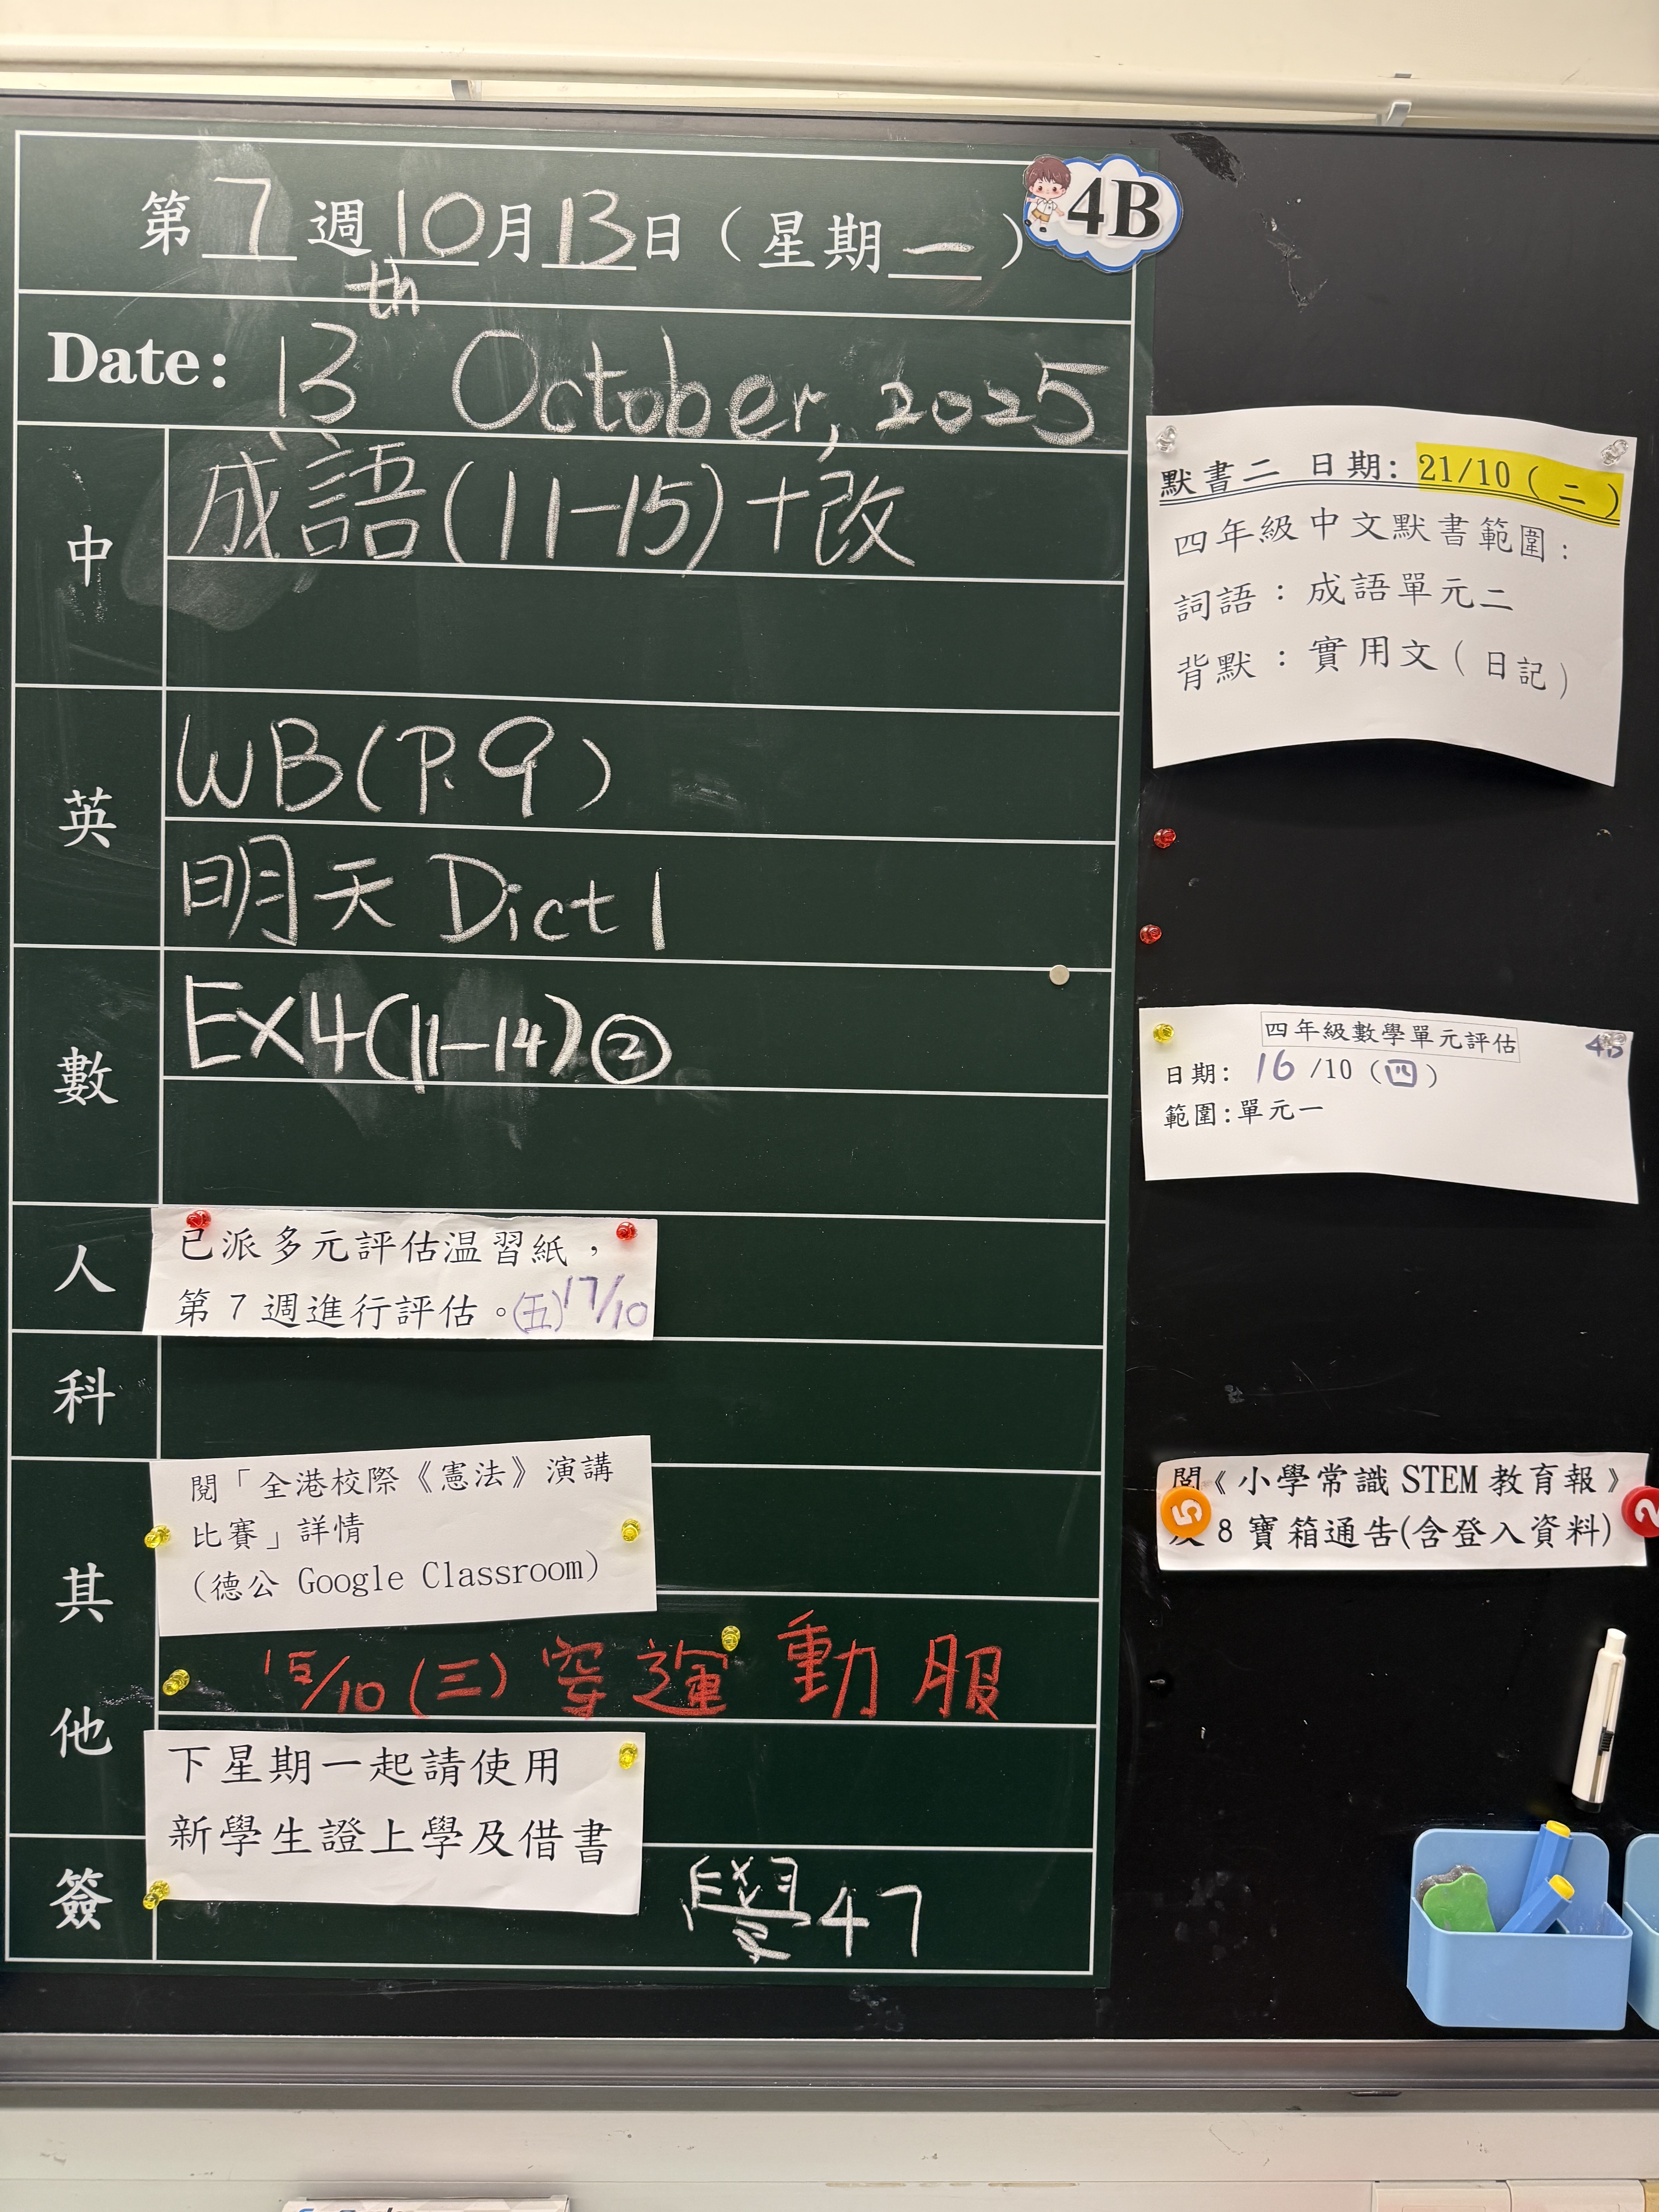 第 7 週 10 月 13 日（星期 一 ）
4B
Date: 13th October, 2025
中
成語(11-15)+改
英
WB(P.9)
明天 Dict 1
數
Ex4(11-14)②
人
已派多元評估温習紙，
第 7 週進行評估。(五)17/10
科
其他
閱「全港校際《憲法》演講
比賽」詳情
（德公 Google Classroom）
15/10(三) 穿運動服
下星期一起請使用
新學生證上學及借書
簽
學47
默書二 日期: 21/10 ( 二 )
四年級中文默書範圍：
詞語：成語單元二
背默：實用文（日記）
四年級數學單元評估
4B
日期: 16 /10 (四)
範圍:單元一
閱《小學常識 STEM 教育報》
及 8 寶箱通告(含登入資料)
5
2